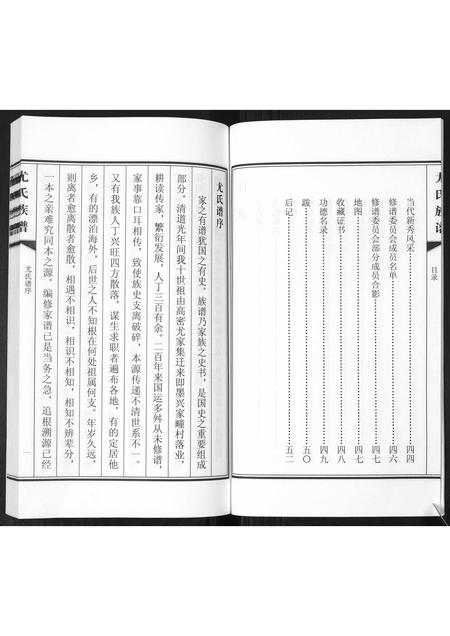 尤氏族谱
目录
当代新秀风采……四四
修谱委员会成员名单……四六
修谱委员会部分成员合影……四七
地图……四七
收藏证书……四八
功德名录……四九
跋……五〇
后记……五二
尤氏谱序
家之有谱犹国之有史。族谱乃家族之史书，是国史之重要组成
部分。清道光年间我十世祖由高密尤家集迁来即墨兴家疃村落业，
耕读传家，繁衍发展，人丁三百有余。二百年来国运多舛从未修谱，
家事靠口耳相传，致族史支离破碎，本源传递不清世系不一。
又有我族人丁兴旺四方散落，谋生求职者遍布各地，有的定居他
乡，有的漂泊海外，后世之人不知根在何处祖属何支。年岁久远，
则离者愈离散者愈散，相遇不相识，相识不相知，相知不辨辈分，
一本之亲难究同本之源。编修家谱已是当务之急，追根溯源已经
尤氏族谱
尤氏谱序